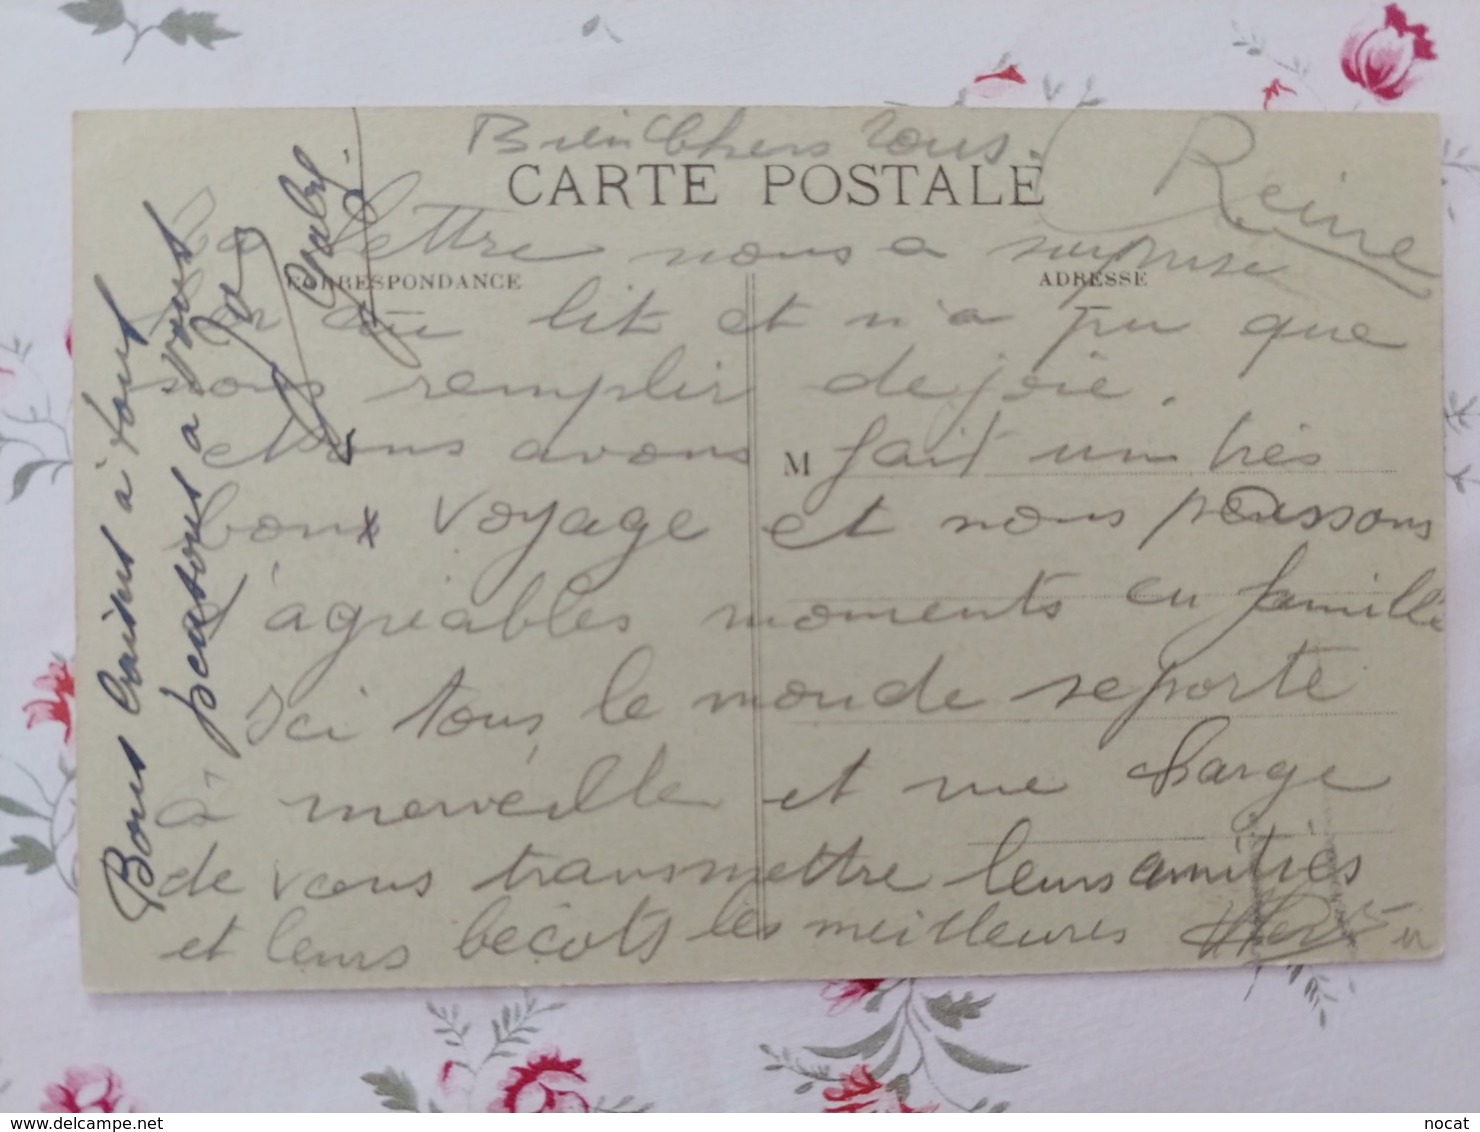 Bien Chers Tous.
CARTE POSTALE
Reine
La lettre nous a surprise
CORRESPONDANCE
ADRESSE
au lit et n'a pu que
nous remplir de joie.
Nous avons fait un très
M
bon voyage et nous passons
d'agréables moments en famille
Ici tous le monde se porte
à merveille et me charge
de vous transmettre leurs amitiés
et leurs becots les meilleures
Bons baisers à tous
pensons a vous
Gaby.
nocat